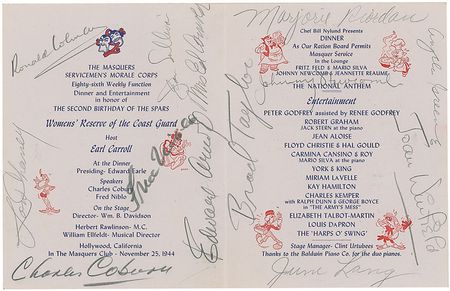 THE MASQUERS
SERVICEMEN'S MORALE CORPS
Eighty-sixth Weekly Function
Dinner and Entertainment
in honor of
THE SECOND BIRTHDAY OF THE SPARS
Womens' Reserve of the Coast Guard
Host
Earl Carroll
At the Dinner
Presiding- Edward Earle
Speakers
Charles Coburn
Fred Niblo
On the Stage-
Director- Wm. B. Davidson
Herbert Rawlinson- M.C.
William Ellfeldt- Musical Director
Hollywood, California
In The Masquers Club - November 25, 1944
Ronald Colman
Charles Coburn
Edward Arnold
Brad Taylor
Chef Bill Nylund Presents
DINNER
As Our Ration Board Permits
Masquer Service
In the Lounge
FRITZ FELD & MARIO SILVA
JOHNNY NEWCOMB & JEANETTE REAUME
THE NATIONAL ANTHEM
Entertainment
PETER GODFREY assisted by RENEE GODFREY
ROBERT GRAHAM
JACK STERN at the piano
JEAN ALOISE
FLOYD CHRISTIE & HAL GOULD
CARMINA CANSINO & ROY
MARIO SILVA at the piano
YORK & KING
MIRIAM LAVELLE
KAY HAMILTON
CHARLES KEMPER
with RALPH DUNN & GEORGE BOYCE
in "THE ARMY'S MESS"
ELIZABETH TALBOT-MARTIN
LOUIS DaPRON
THE 'HARPS O' SWING'
Stage Manager- Clint Urtubees
Thanks to the Baldwin Piano Co. for the duo pianos.
Marjorie Riordan
June Lang